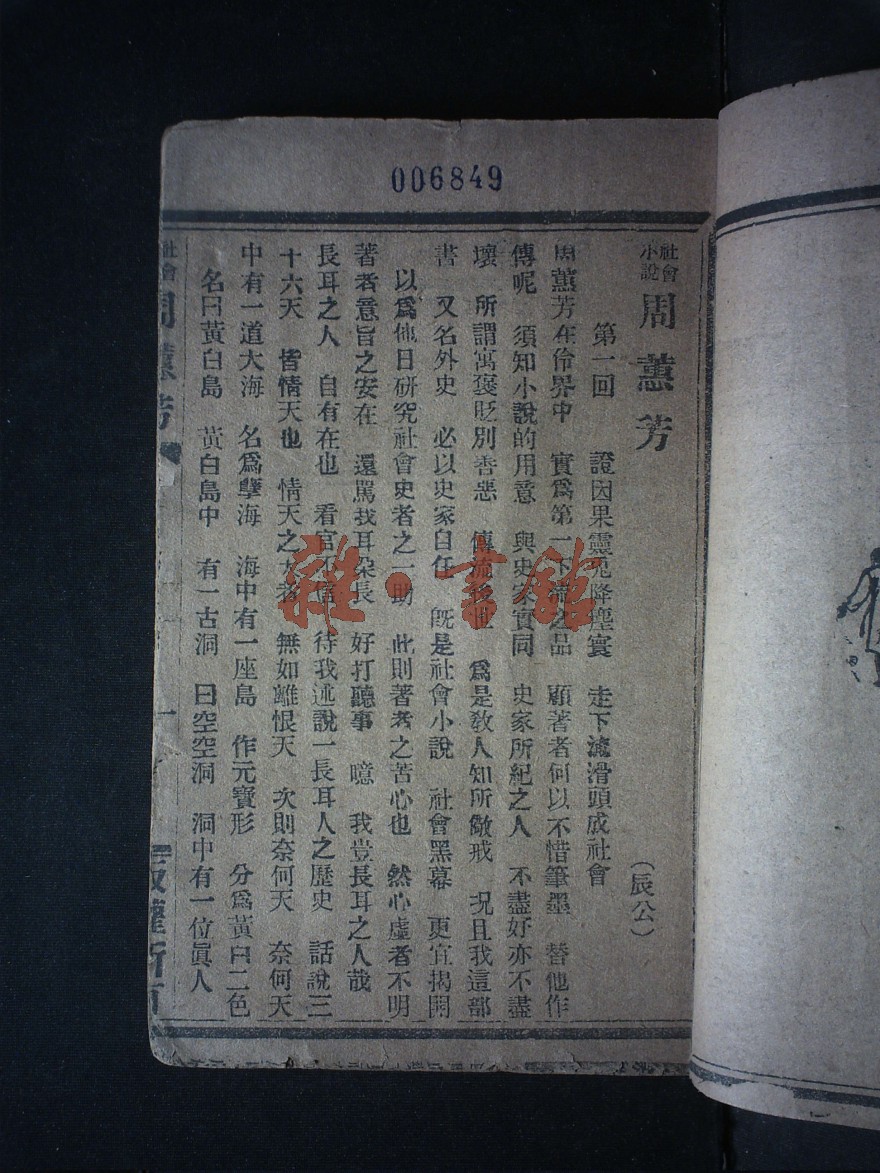 006849
社會小說 周薰芳
(辰公)
第一回 證因果靈鬼降塵寰 走下流滑頭成社會
周薰芳在伶界中 實爲第一下流之品 顧著者何以不惜筆墨 替他作
傳呢 須知小說的用意 與史家實同 史家所紀之人 不盡好亦不盡
壞 所謂寓褒貶別善惡 傳流後世 爲是敎人知所儆戒 况且我這部
書 又名外史 必以史家自任 旣是社會小說 社會黑幕 更宜揭開
以爲他日研究社會史者之一助 此則著者之苦心也 然心虛者不明
著者意旨之安在 還罵我耳朶長 好打聽事 噫 我豈長耳之人哉
長耳之人 自有在也 看官不信 待我述說一長耳人之歷史 話說三
十六天 皆情天也 情天之大者 無如離恨天 次則奈何天 奈何天
中有一道大海 名爲孽海 海中有一座島 作元寶形 分爲黃白二色
名曰黃白島 黃白島中 有一古洞 曰空空洞 洞中有一位眞人
社會 周薰芳
一
雜·書館